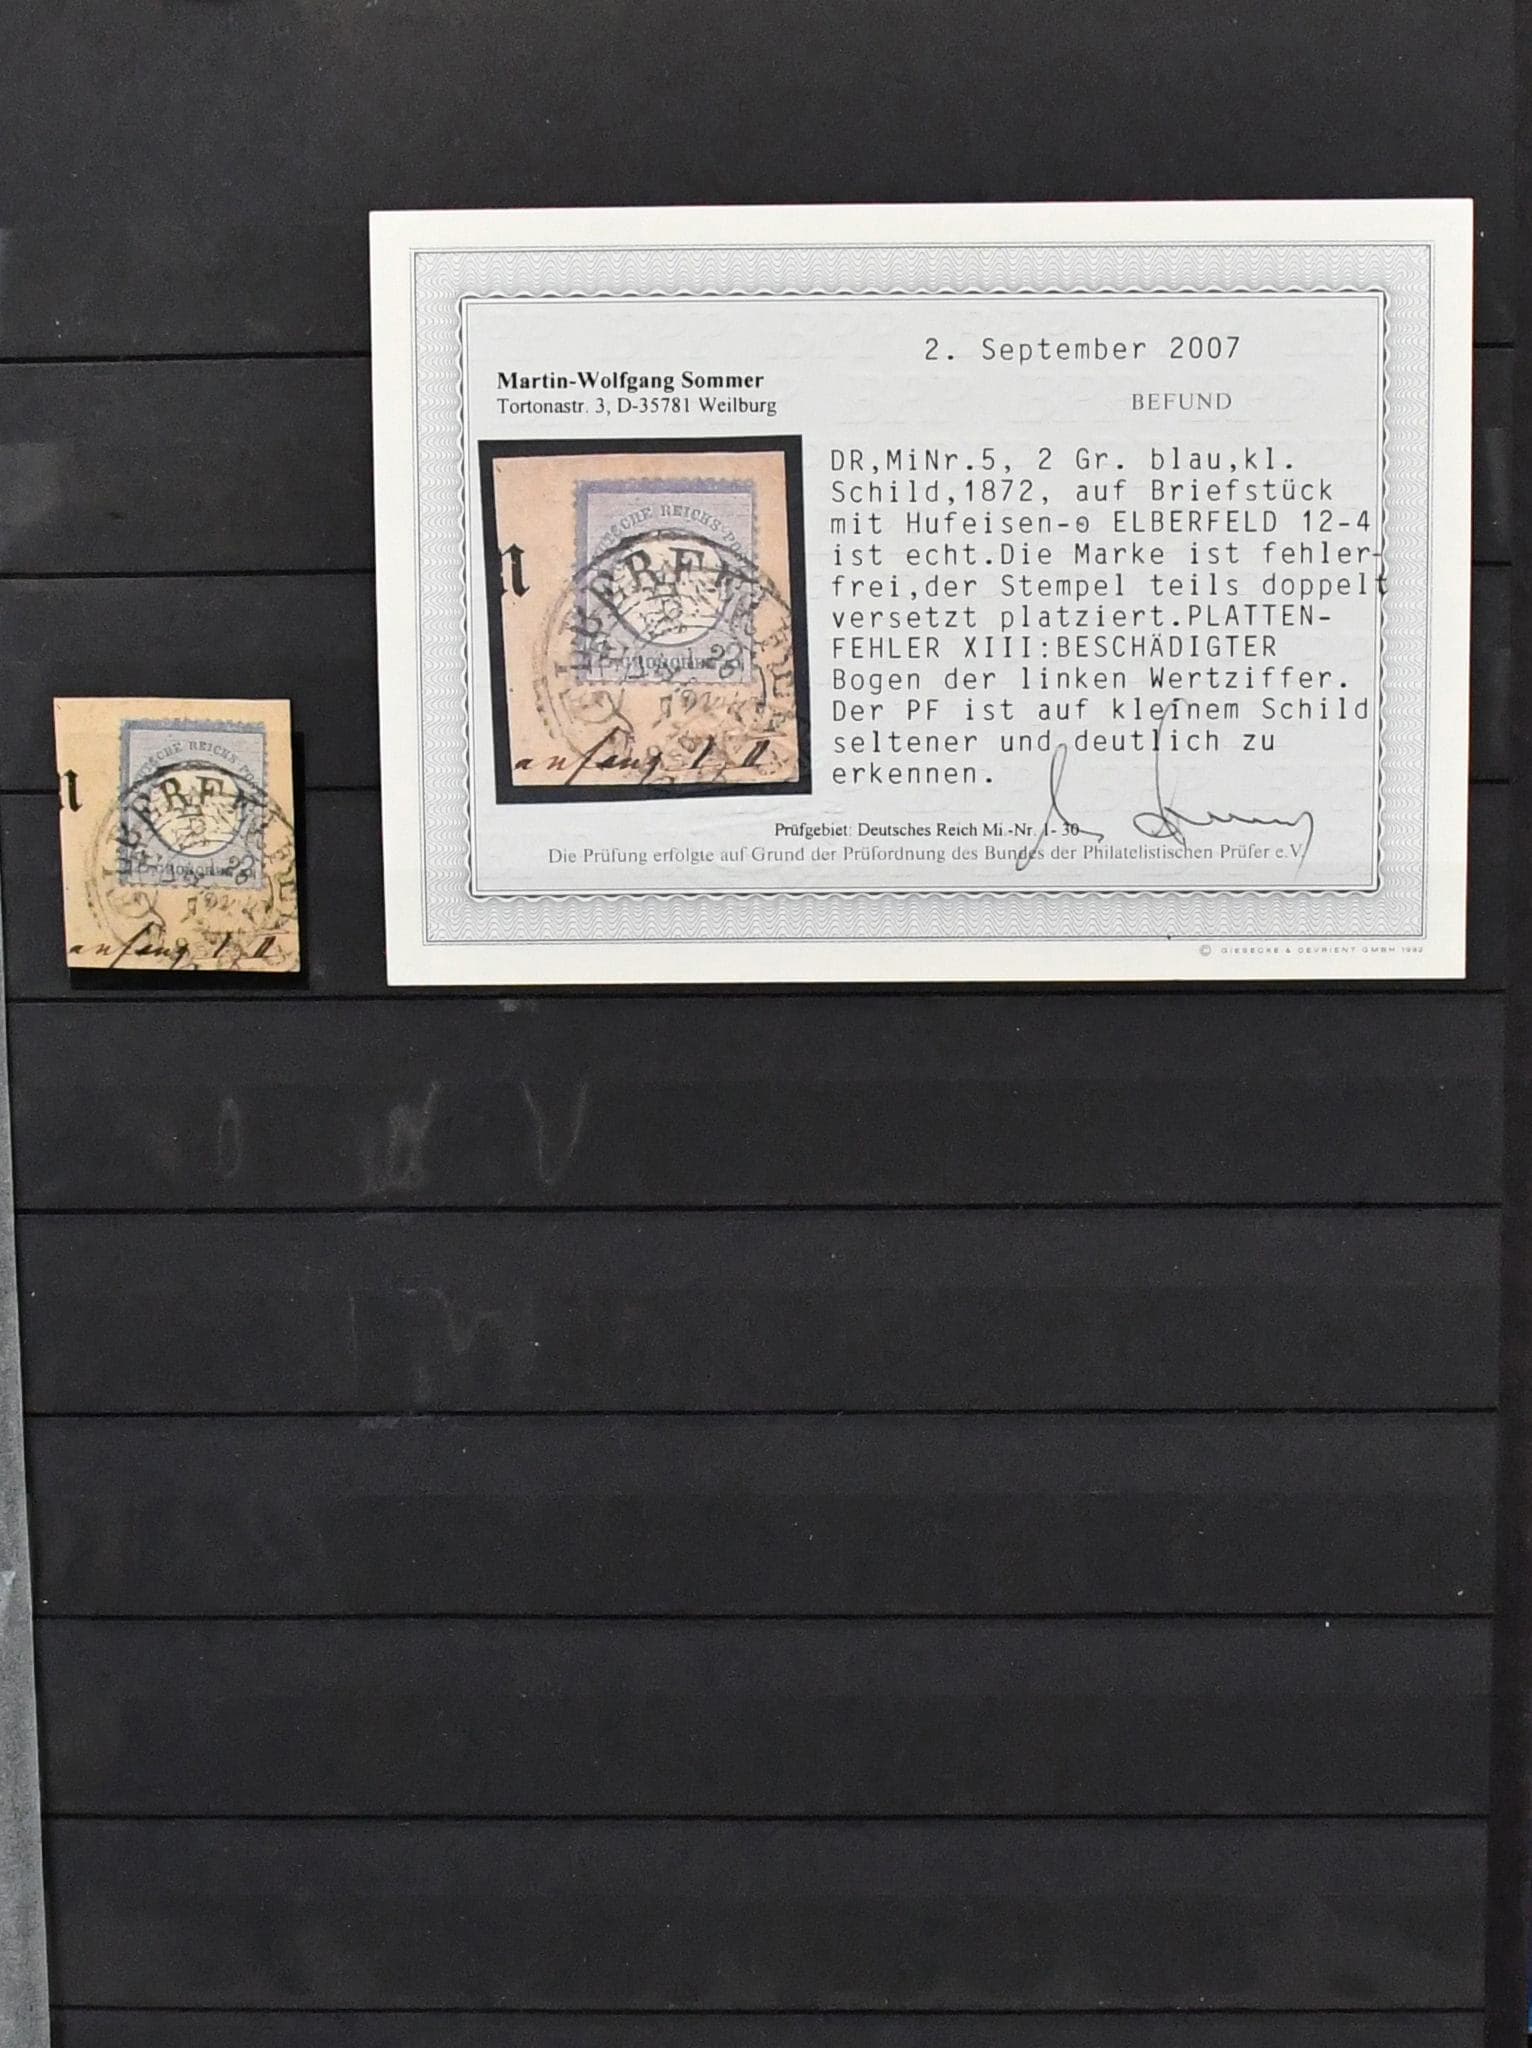 2. September 2007
Martin-Wolfgang Sommer
Tortonastr. 3, D-35781 Weilburg
BEFUND
DR,MiNr.5, 2 Gr. blau,kl.
Schild,1872, auf Briefstück
mit Hufeisen-⊙ ELBERFELD 12-4
ist echt.Die Marke ist fehler-
frei,der Stempel teils doppelt
versetzt platziert.PLATTEN-
FEHLER XIII:BESCHÄDIGTER
Bogen der linken Wertziffer.
Der PF ist auf kleinem Schild
seltener und deutlich zu
erkennen.
Prüfgebiet: Deutsches Reich Mi.-Nr. 1- 30
Die Prüfung erfolgte auf Grund der Prüfordnung des Bundes der Philatelistischen Prüfer e.V.
© GIESECKE & DEVRIENT GMBH 1992
n
REICHS-PO
anfang
n
REICHS PO
anfang